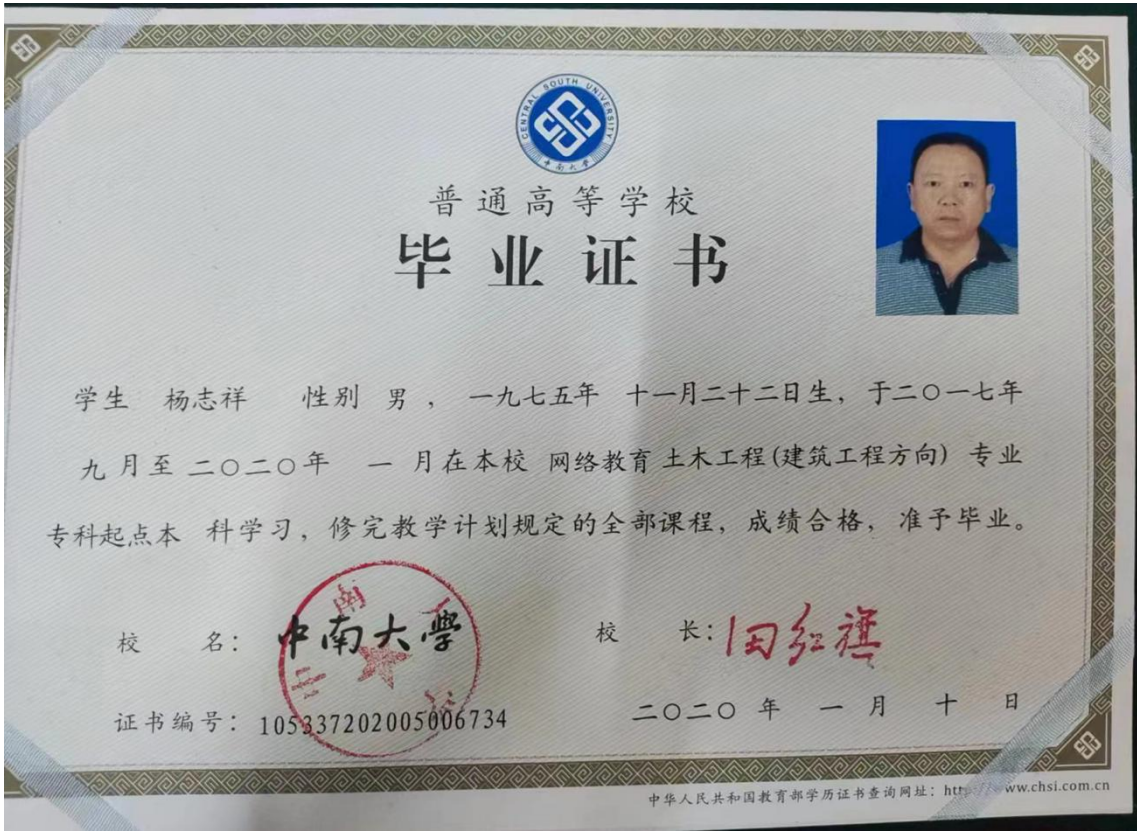 CENTRAL SOUTH UNIVERSITY
中南大学
普通高等学校
毕业证书
学生 杨志祥 性别 男 ， 一九七五年 十一月二十二日生，于二〇一七年
九 月至 二〇二〇年 一 月在本校 网络教育 土木工程(建筑工程方向) 专业
专科起点本 科学习，修完教学计划规定的全部课程，成绩合格，准予毕业。
校 名： 中南大學
校 长： 田红旗
证书编号： 105337202005006734
二〇二〇 年 一 月 十 日
中华人民共和国教育部学历证书查询网址： http://www.chsi.com.cn